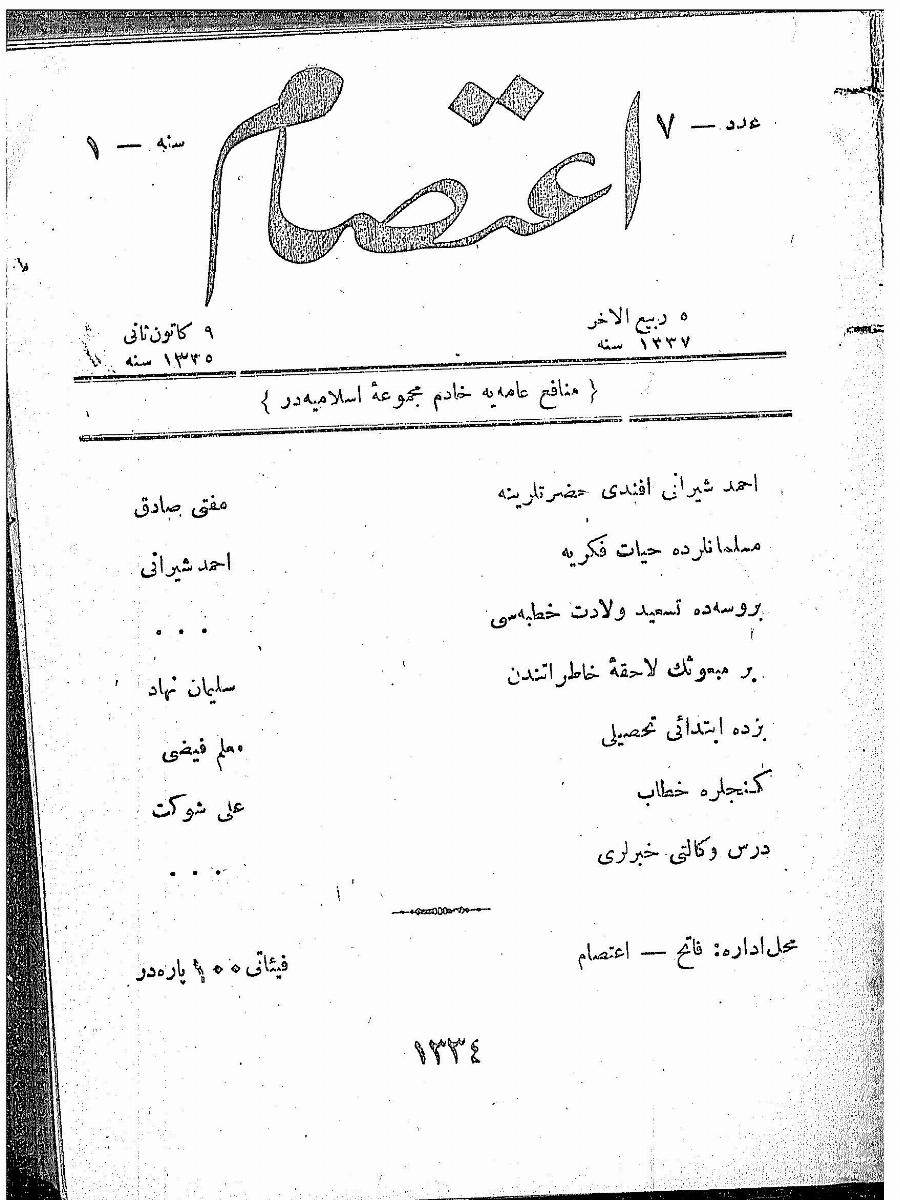 عدد — ٧
اعتصام
سنه — ١
٥ ربيع الاخر
١٣٣٧ سنه
٩ كانون ثانی
١٣٣٥ سنه
{ منافع عامه‌يه خادم مجموعهٔ اسلاميه‌در }
احمد شيرانی افندی حضرتلرينه مفتی صادق
مسلمانلرده حيات فكريه احمد شيرانی
بروسه‌ده تسعيد ولادت خطبه‌سی . . .
بر مبعوثك لاحقهٔ خاطراتندن سليمان نهاد
بزده ابتدائی تحصيلی معلم فيضی
كنجلره خطاب علی شوكت
درس وكالتی خبرلری . . .
محل اداره: فاتح — اعتصام فيئاتی ١٠٠ پاره‌در
١٣٣٤